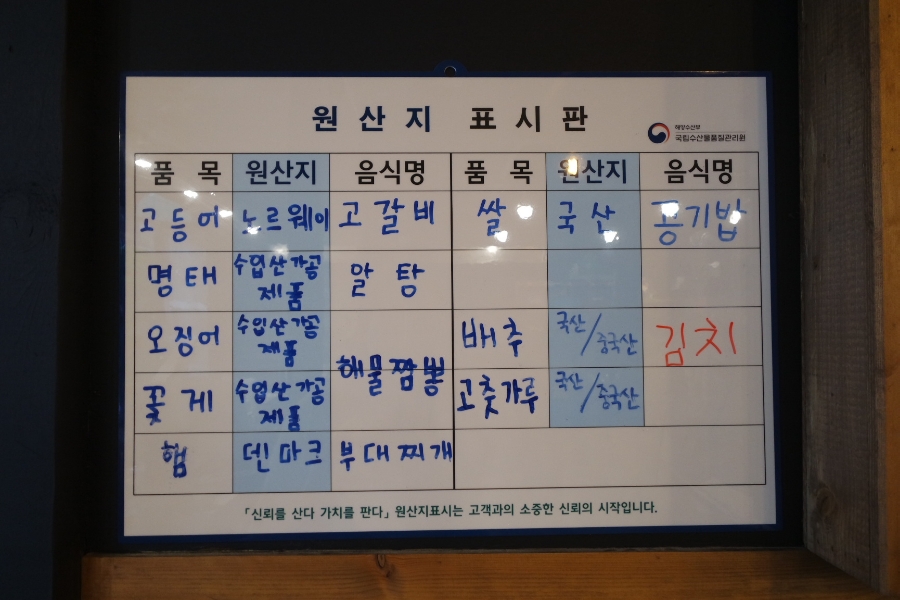 원산지 표시판
해양수산부
국립수산물품질관리원
품목 원산지 음식명 품목 원산지 음식명
고등어 노르웨이 고갈비 쌀 국산 공기밥
명태 수입산가공 알탕
제품
오징어 수입산가공 해물짬뽕 배추 국산/중국산 김치
제품
꽃게 수입산가공 고춧가루 국산/중국산
제품
햄 덴마크 부대찌개
「신뢰를 산다 가치를 판다」 원산지표시는 고객과의 소중한 신뢰의 시작입니다.